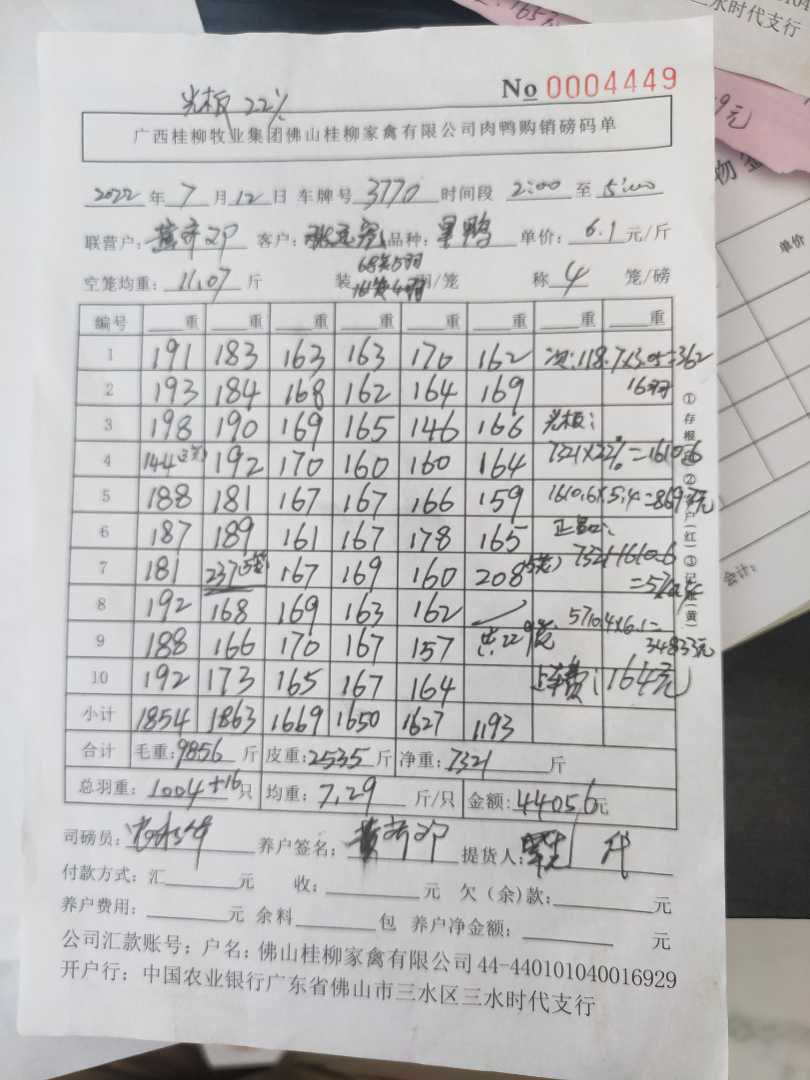 三水时代支行
No 0004449
光板 22%
广西桂柳牧业集团佛山桂柳家禽有限公司肉鸭购销磅码单
2022年7月12日 车牌号3770 时间段2:00至5:00
联营户: 客户: 品种: 单价:6.1元/斤
68笼5羽
空笼均重:11.07斤 装 16笼4羽 羽/笼 称4笼/磅
编号 重 重 重 重 重 重 重 重
1 191 183 163 163 170 162 次:118.7×3.05=362
2 193 184 168 162 164 169 16羽
3 198 190 169 165 146 166 光板:
4 144(3笼) 192 170 160 160 164 7321×22%=1610.6
5 188 181 167 167 166 159 1610.6×5.4=8697元
6 187 189 161 167 178 165 正品:
7 181 237(5笼) 167 169 160 208(5笼) 7321-1610.6
8 192 168 169 163 162 =5710.4
9 188 166 170 167 157 共229笼 5710.4×6.1=
34833元
10 192 173 165 167 164 上车费:164元
小计 1854 1863 1669 1650 1627 1193
合计 毛重:9856斤 皮重:2535斤 净重:7321斤
总羽重:1004+16只 均重:7.29斤/只 金额:44056元
司磅员: 养户签名: 提货人:
付款方式:汇 元 收: 元 欠(余)款: 元
养户费用: 元 余料 包 养户净金额: 元
公司汇款账号:户名:佛山桂柳家禽有限公司44-440101040016929
开户行:中国农业银行广东省佛山市三水区三水时代支行
①存根
②
户(红)
③记
(黄)
会计:
单价